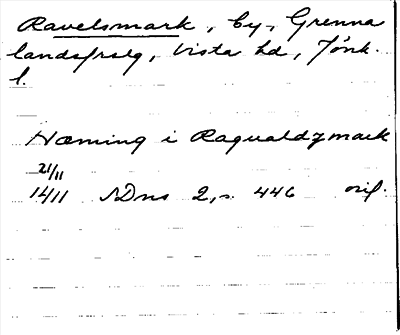 Ravelsmark, by, Grenna
landsfrslg, Vista hd, Jönk.
l.
Hæming i Ragualdzmark
21/11
1411 SDns 2, s. 446 orig.